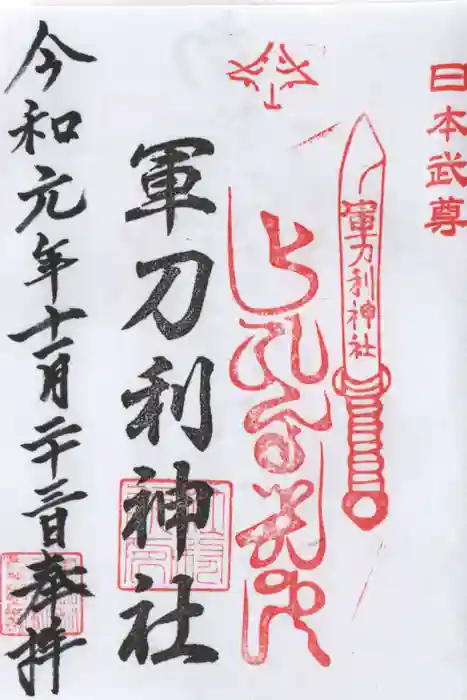 日本武尊
軍刀利神社
軍刀利神社
今和元年十一月二十三日奉拝